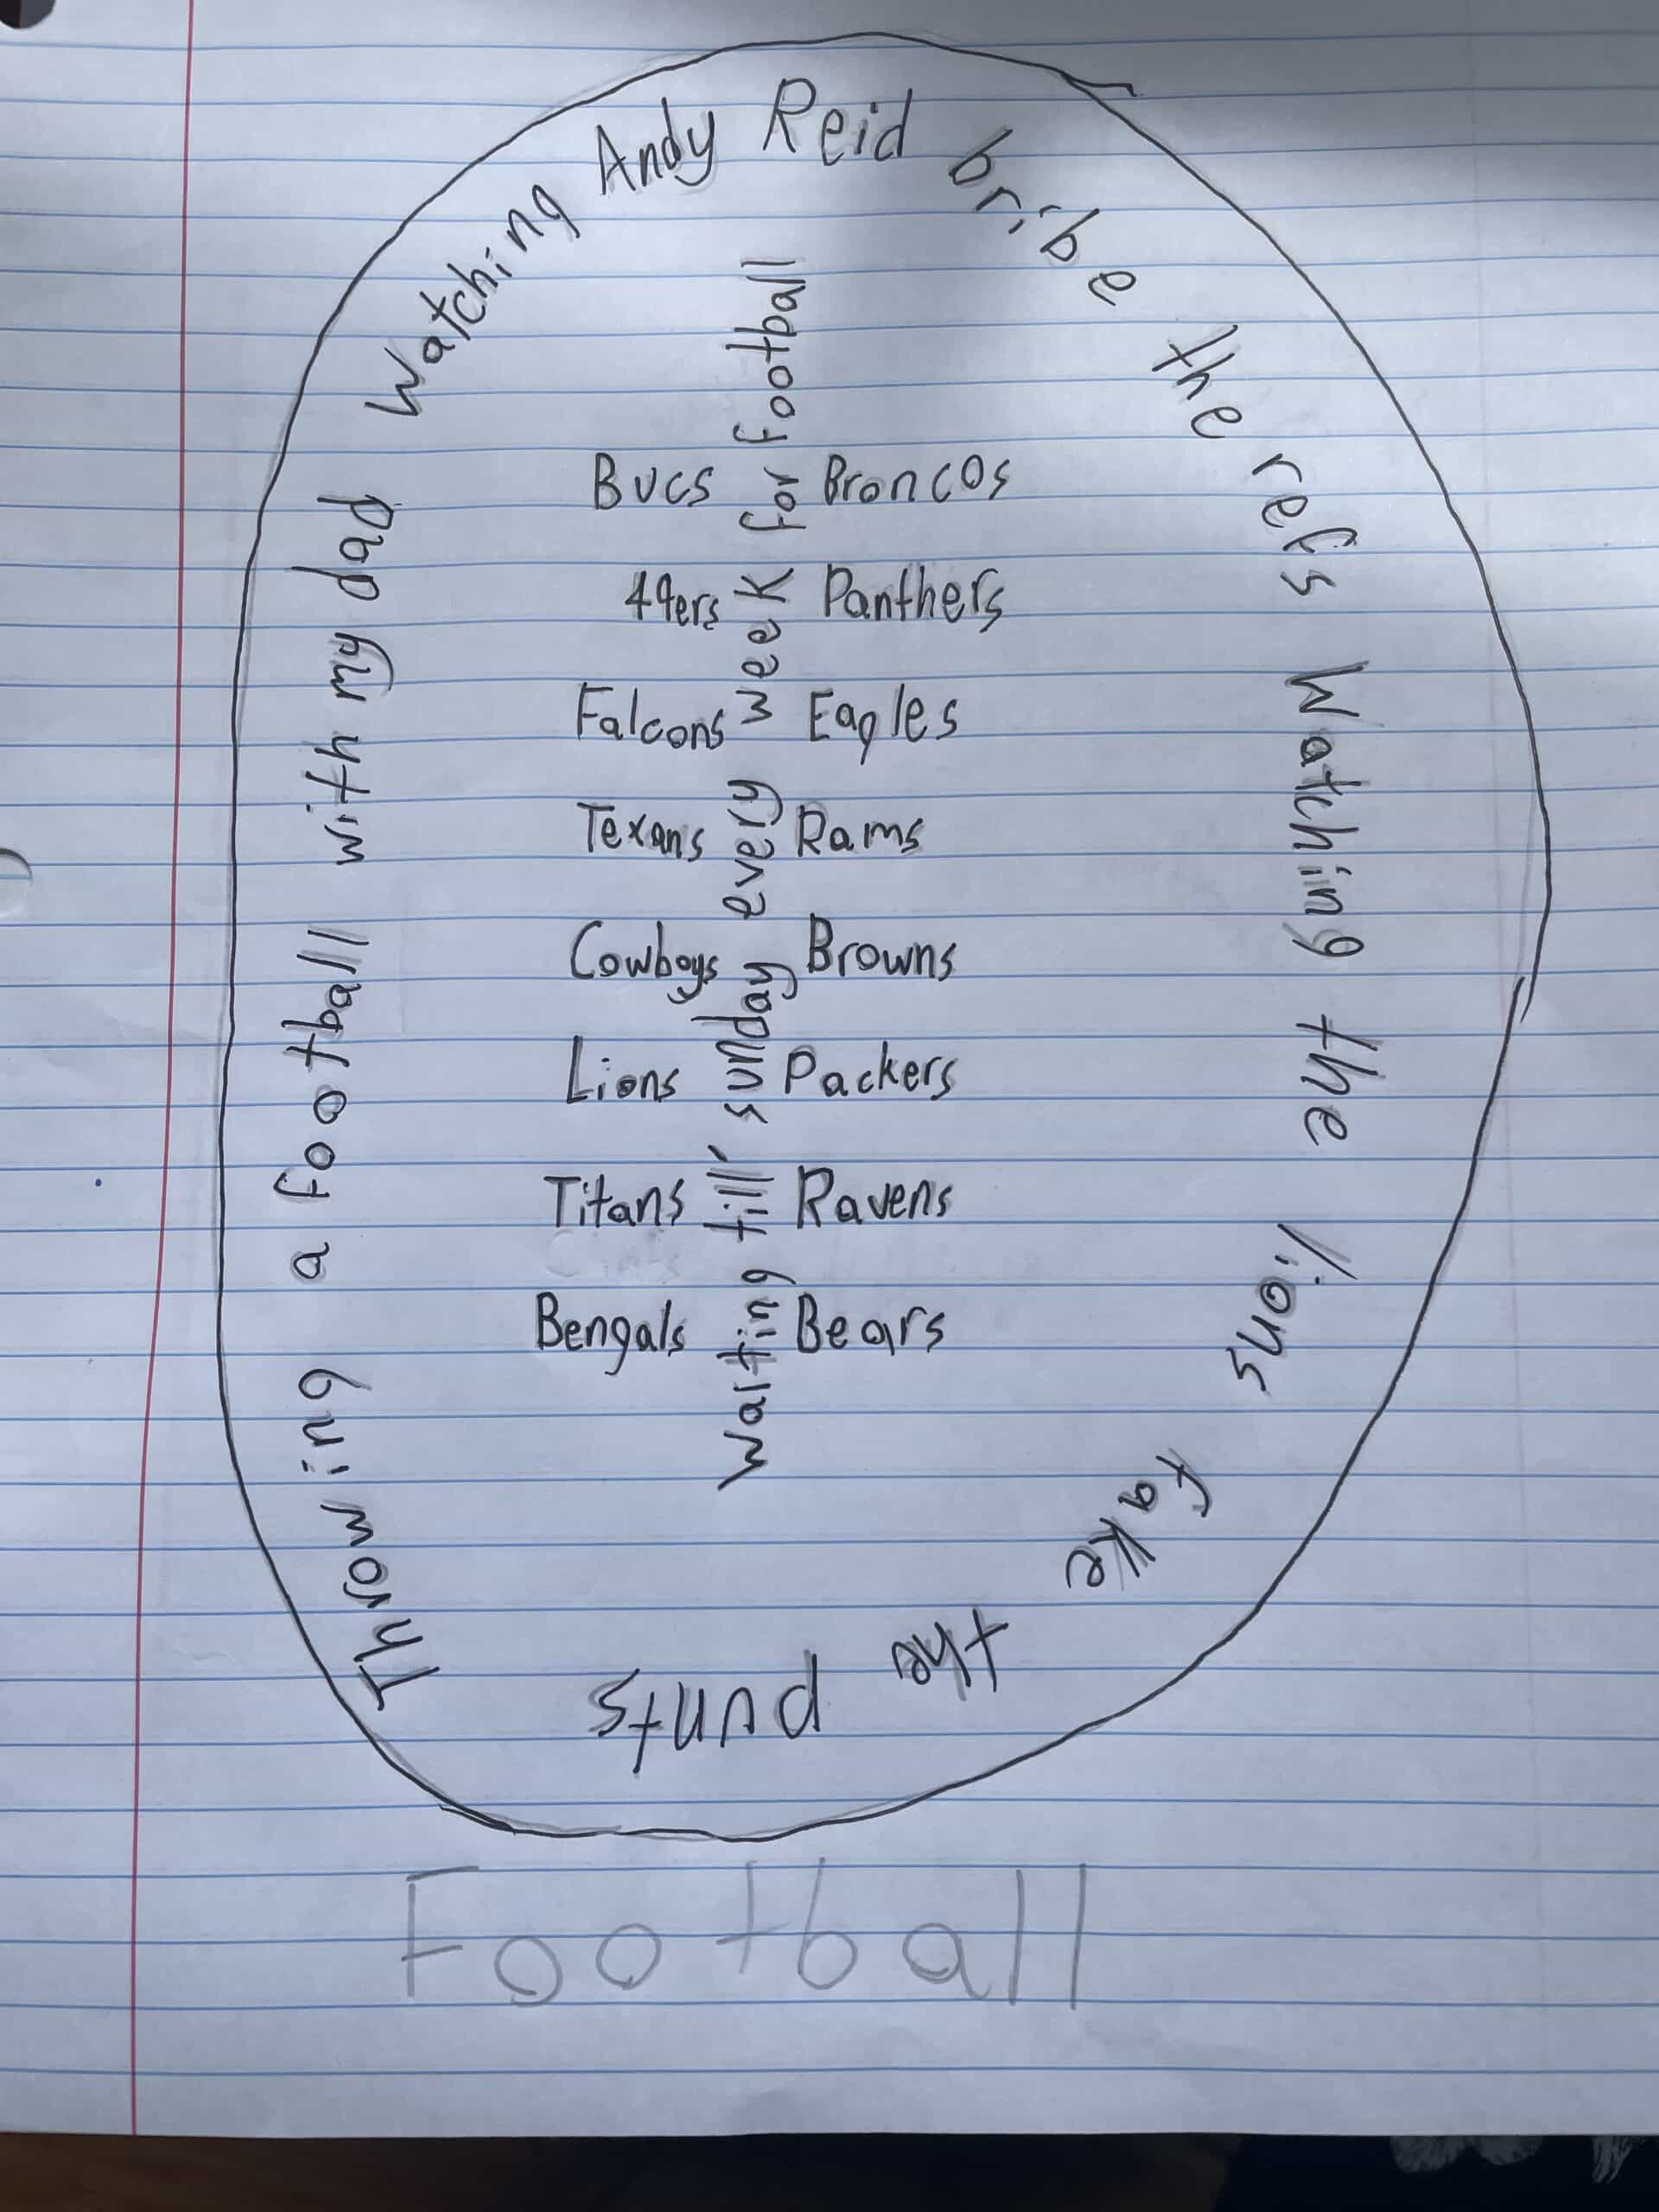 Throwing a football with my dad Watching Andy Reid bribe the refs Watching the lions fake the punts
Waiting till' sunday every week for football
Bucs Broncos
49ers Panthers
Falcons Eagles
Texans Rams
Cowboys Browns
Lions Packers
Titans Ravens
Bengals Bears
Football